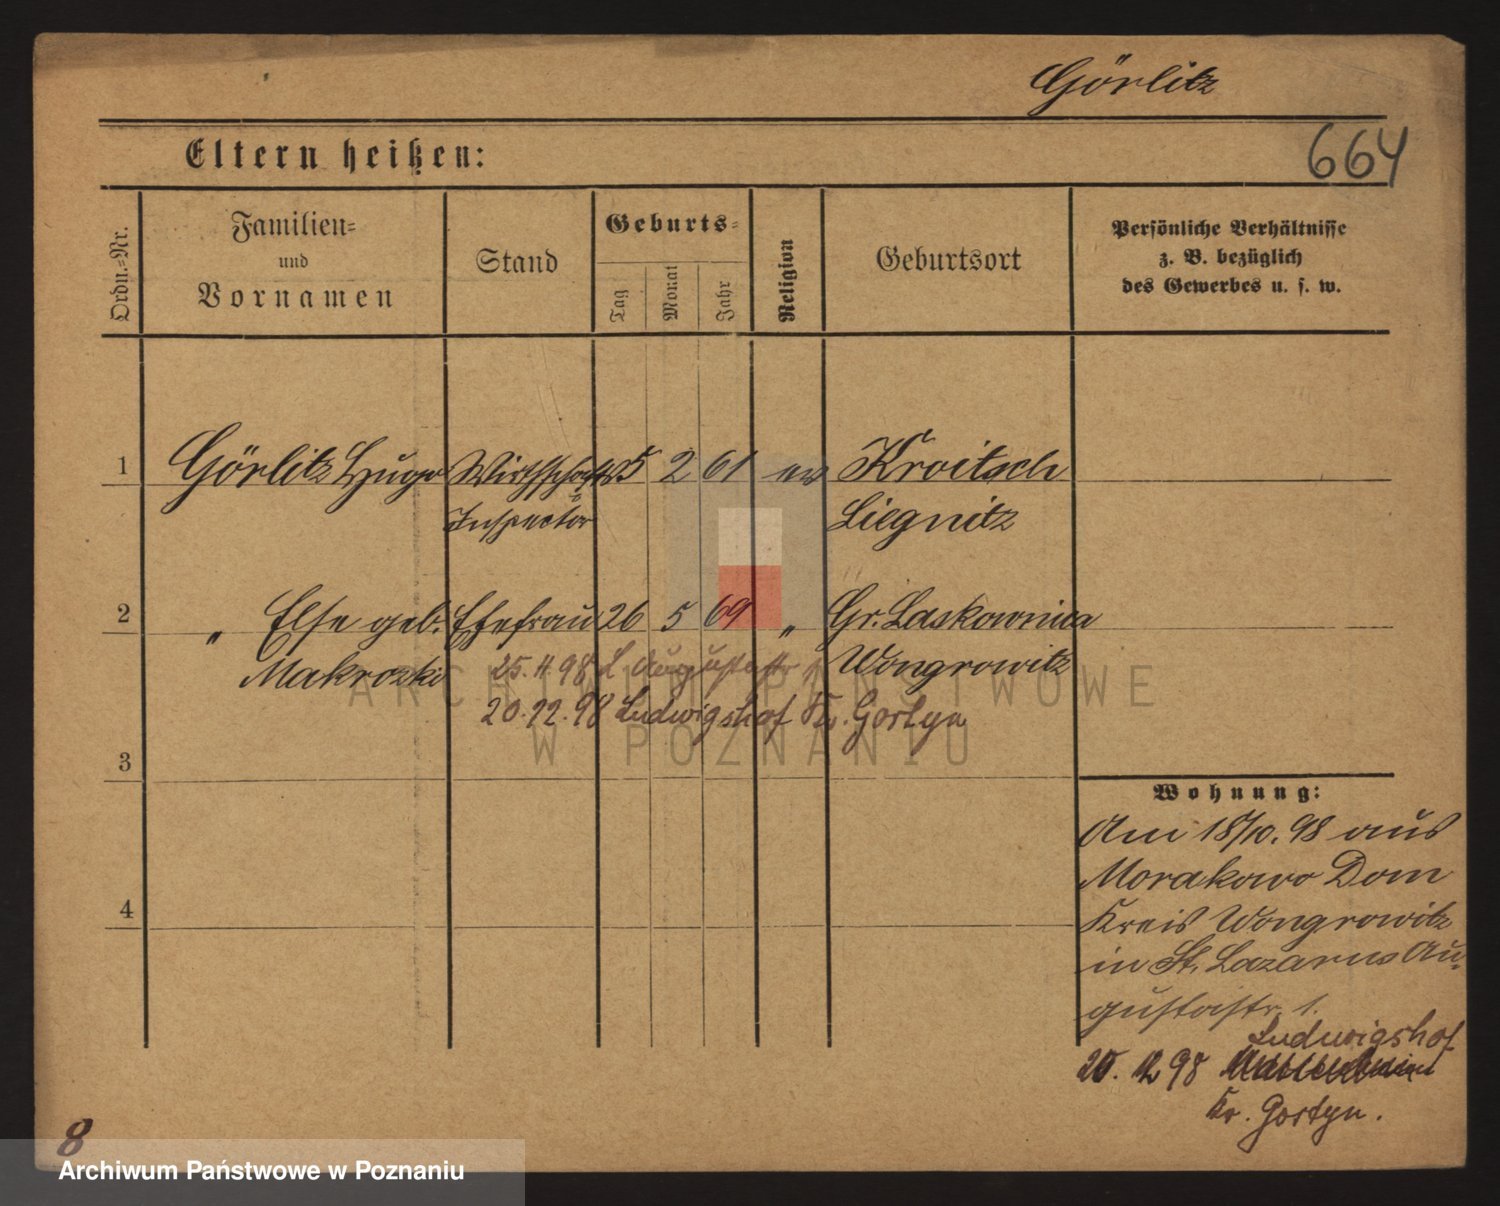 Görlitz
664
Eltern heißen:
Ordn.-Nr.
Familien-
und
Vornamen
Stand
Geburts-
Tag
Monat
Jahr
Religion
Geburtsort
Persönliche Verhältnisse
z. B. bezüglich
des Gewerbes u. s. w.
1 Görlitz Hugo Wirthschafts 5 2 61 ev Kroitsch
Inspector Liegnitz
2 " Else geb. Ehefrau 26 5 69 " Gr. Laskownica
Makrozki Wongrowitz
25. 11. 98 L Augustastr 1
20.12.98 Ludwigshof Kr. Gostyn
3
4
Wohnung:
Am 18/10.98 aus
Morakowo Dom
Kreis Wongrowitz
in St. Lazarus Au-
gustastr. 1.
Ludwigshof
20. 12 98
Kr. Gostyn.
8
ARCHIWUM PAŃSTWOWE
W POZNANIU
Archiwum Państwowe w Poznaniu